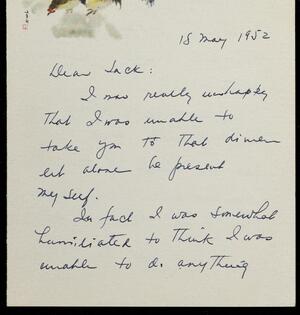 18 May 1952
Dear Jack:
I was really unhappy
that I was unable to
take you to that dinner
let alone be present
myself.
In fact I was somewhat
humiliated to think I was
unable to do anything